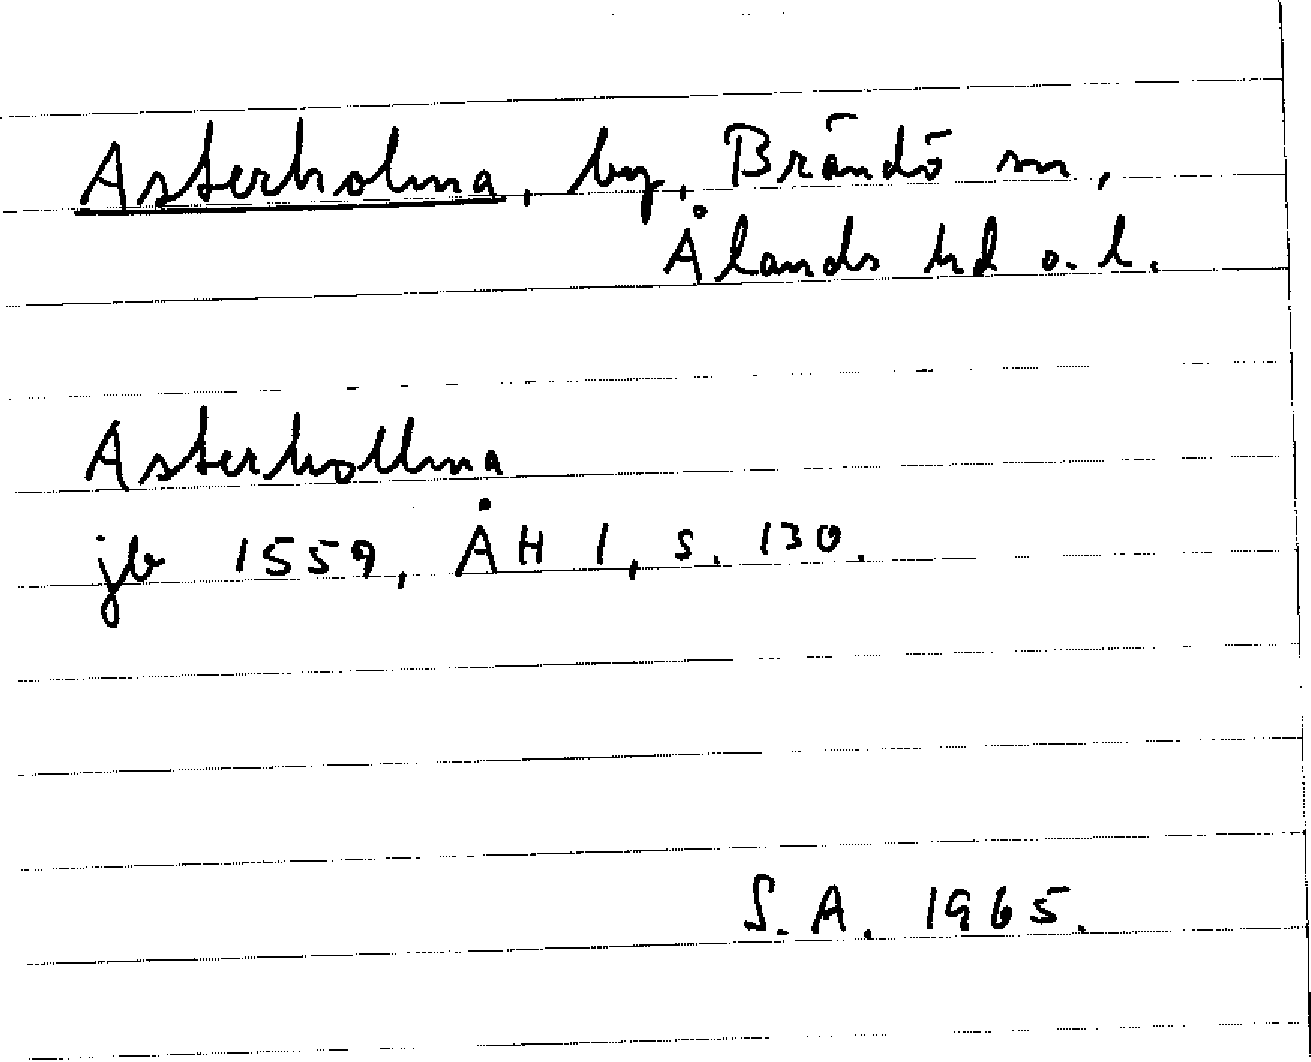 Asterholma, by, Brändö sn,
Ålands hd o. l.
Asterhollma
jb 1559, ÅH 1, s. 130.
S.A. 1965.